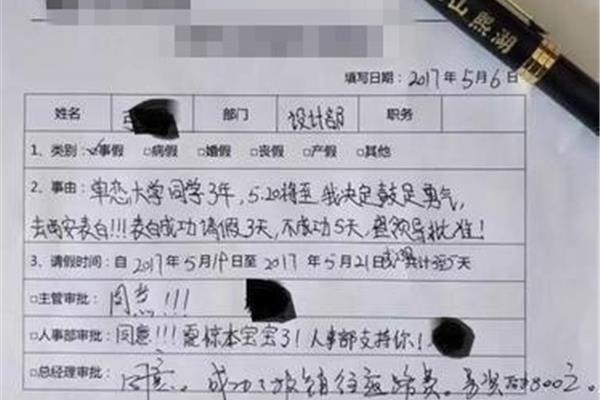 山湖
填写日期：2017年5月6日
姓名 部门 设计部 职务
1、类别：☑事假 □病假 □婚假 □丧假 □产假 □其他
2、事由：单恋大学同学3年，5.20将至我决定鼓足勇气，
去西安表白!!!表白成功请假3天，不成功5天，望领导批准！
3、请假时间：自2017年5月19日至2017年5月21日或共计5天
□主管审批：同意!!!
□人事部审批：同意!!!震惊本宝宝了！人事部支持你！
□总经理审批：同意。成功了报销往返路费。另奖800元。